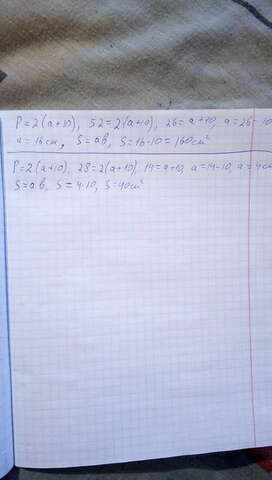 P=2(a+10), 52=2(a+10), 26=a+10, a=26-10
a=16см, S=ab, S=16·10=160см²
P=2(a+10), 28=2(a+10), 14=a+10, a=14-10, a=4см
S=a·b, S=4·10, S=40см²